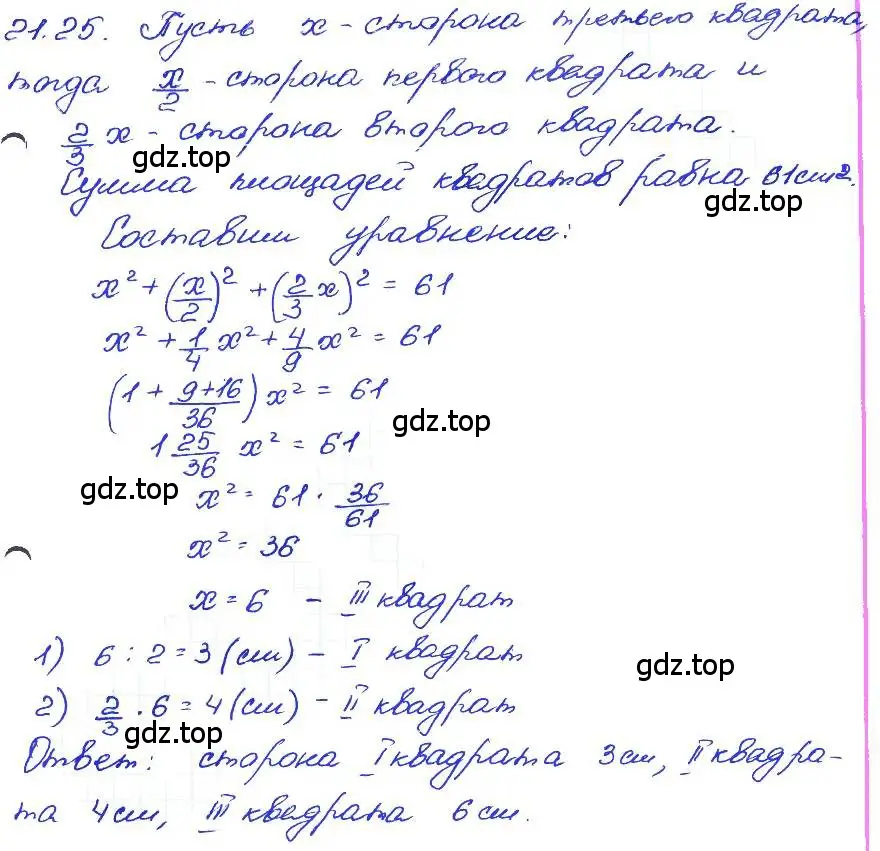 21.25. Пусть x - сторона третьего квадрата,
тогда x/2 - сторона первого квадрата и
2/3 x - сторона второго квадрата.
gdz.top
Сумма площадей квадратов равна 61см².
gdz.top
Составим уравнение:
x² + (x/2)² + (2/3 x)² = 61
x² + 1/4 x² + 4/9 x² = 61
(1 + 9+16/36) x² = 61
gdz.top
1 25/36 x² = 61
gdz.top
x² = 61 · 36/61
x² = 36
x = 6 - III квадрат
1) 6 : 2 = 3 (см) - I квадрат
gdz.top
2) 2/3 · 6 = 4 (см) - II квадрат
gdz.top
Ответ: сторона I квадрата 3см, II квадра-
та 4см, III квадрата 6см.